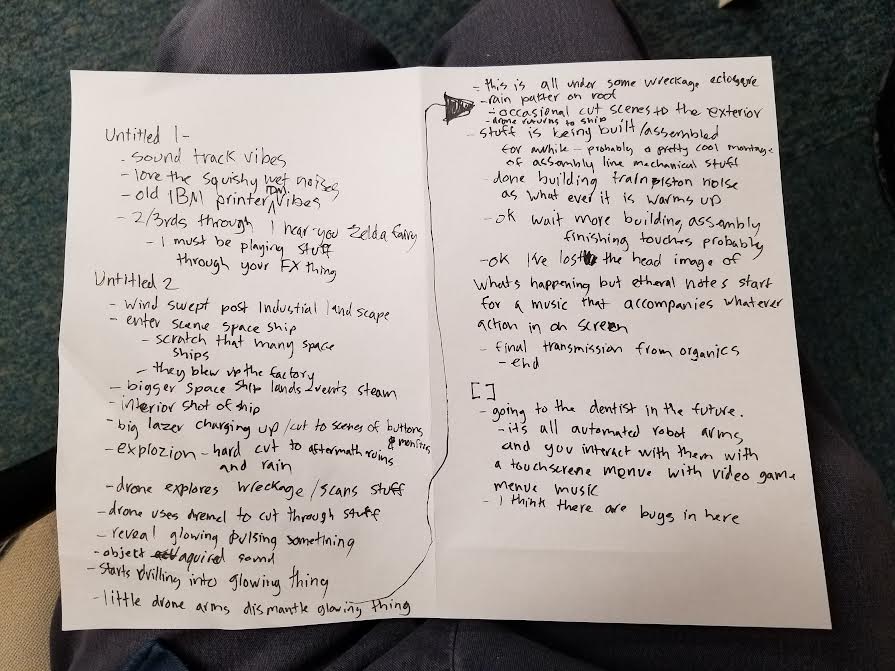 Untitled 1-
- sound track vibes
- love the squishy wet noises
- old IBM printer IDM vibes
- 2/3rds through I hear you Zelda fairy
- I must be playing stuff
through your FX thing
Untitled 2
- Wind swept post Industrial landscape
- enter scene space ship
- scratch that many space
ships
- they blew up the factory
- bigger space ship lands-vents steam
- interior shot of ship
- big lazer charging up /cut to scenes of buttons
& monitors
- explozion - hard cut to aftermath ruins
and rain
- drone explores wreckage /scans stuff
- drone uses dremel to cut through stuff
- reveal glowing pulsing something
- object aquired sound
- starts drilling into glowing thing
- little drone arms dismantle glowing thing
- this is all under some wreckage
- rain patter on roof
- occasional cut scenes to the exterior
- drone returns to ship
- stuff is being built/assembled
for awhile - probably a pretty cool montage
of assembly line mechanical stuff
- done building train piston noise
as what ever it is warms up
- ok wait more building assembly
finishing touches probably
- ok I've lost the head image of
whats happening but etheral notes start
for a music that accompanies whatever
action in on screen
- final transmission from organics
- end
[ ]
- going to the dentist in the future.
- its all automated robot arms,
and you interact with them with
a touchscrene menue with video game
menue music
- I think there are bugs in here